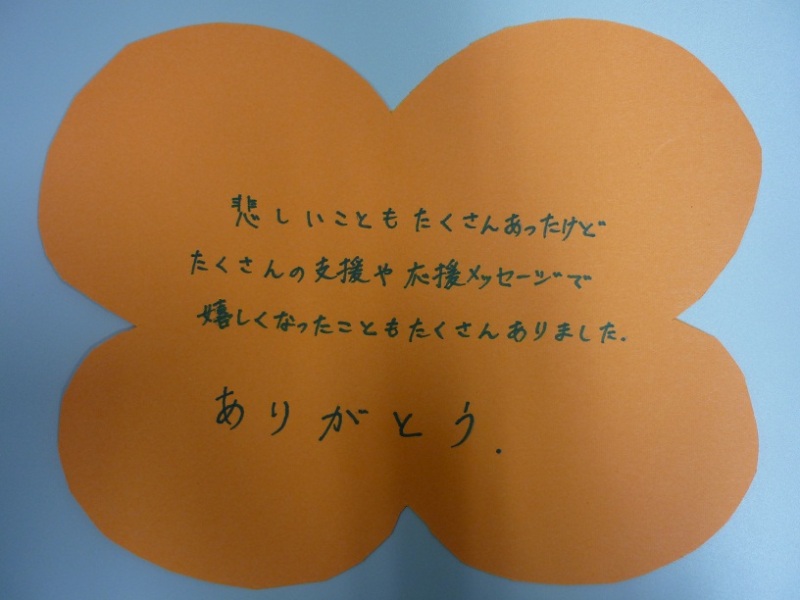 悲しいこともたくさんあったけど
たくさんの支援や応援メッセージで
嬉しくなったこともたくさんありました.
ありがとう.